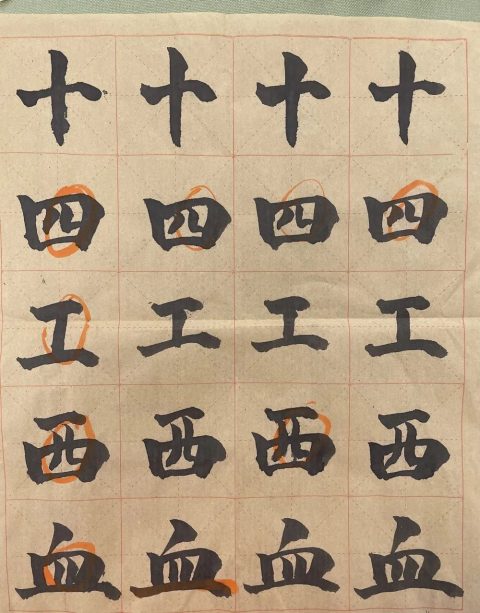 十十十十
四四四四
工工工工
西西西西
血血血血